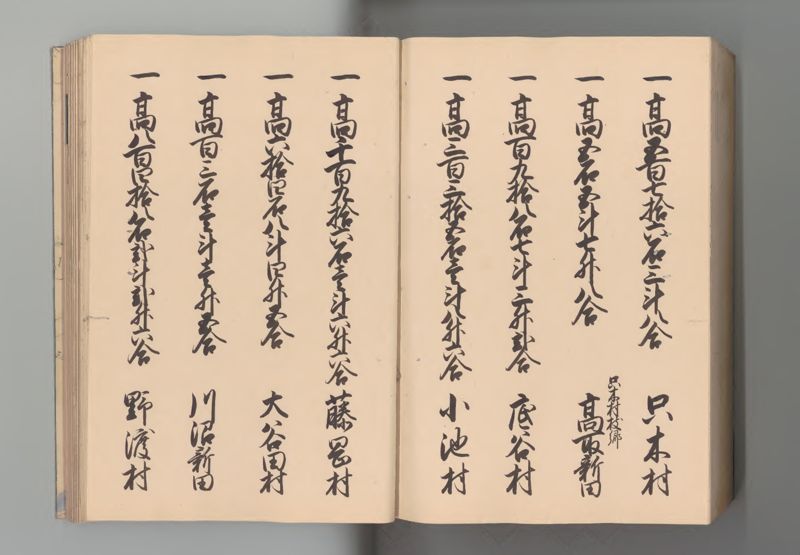 一 高五百七拾六石三斗八合 只木村
一 高五石五斗七升八合 只木村枝郷 高取新田
一 高百九拾八石七斗三升弐合 底谷村
一 高三百三拾五石壱斗八升六合 小池村
一 高千百九拾六石壱斗六升六合 藤岡村
一 高六拾四石八斗四升五合 大谷田村
一 高百三石壱斗壱升五合 川沼新田
一 高八百四拾八石弐斗弐升六合 野渡村